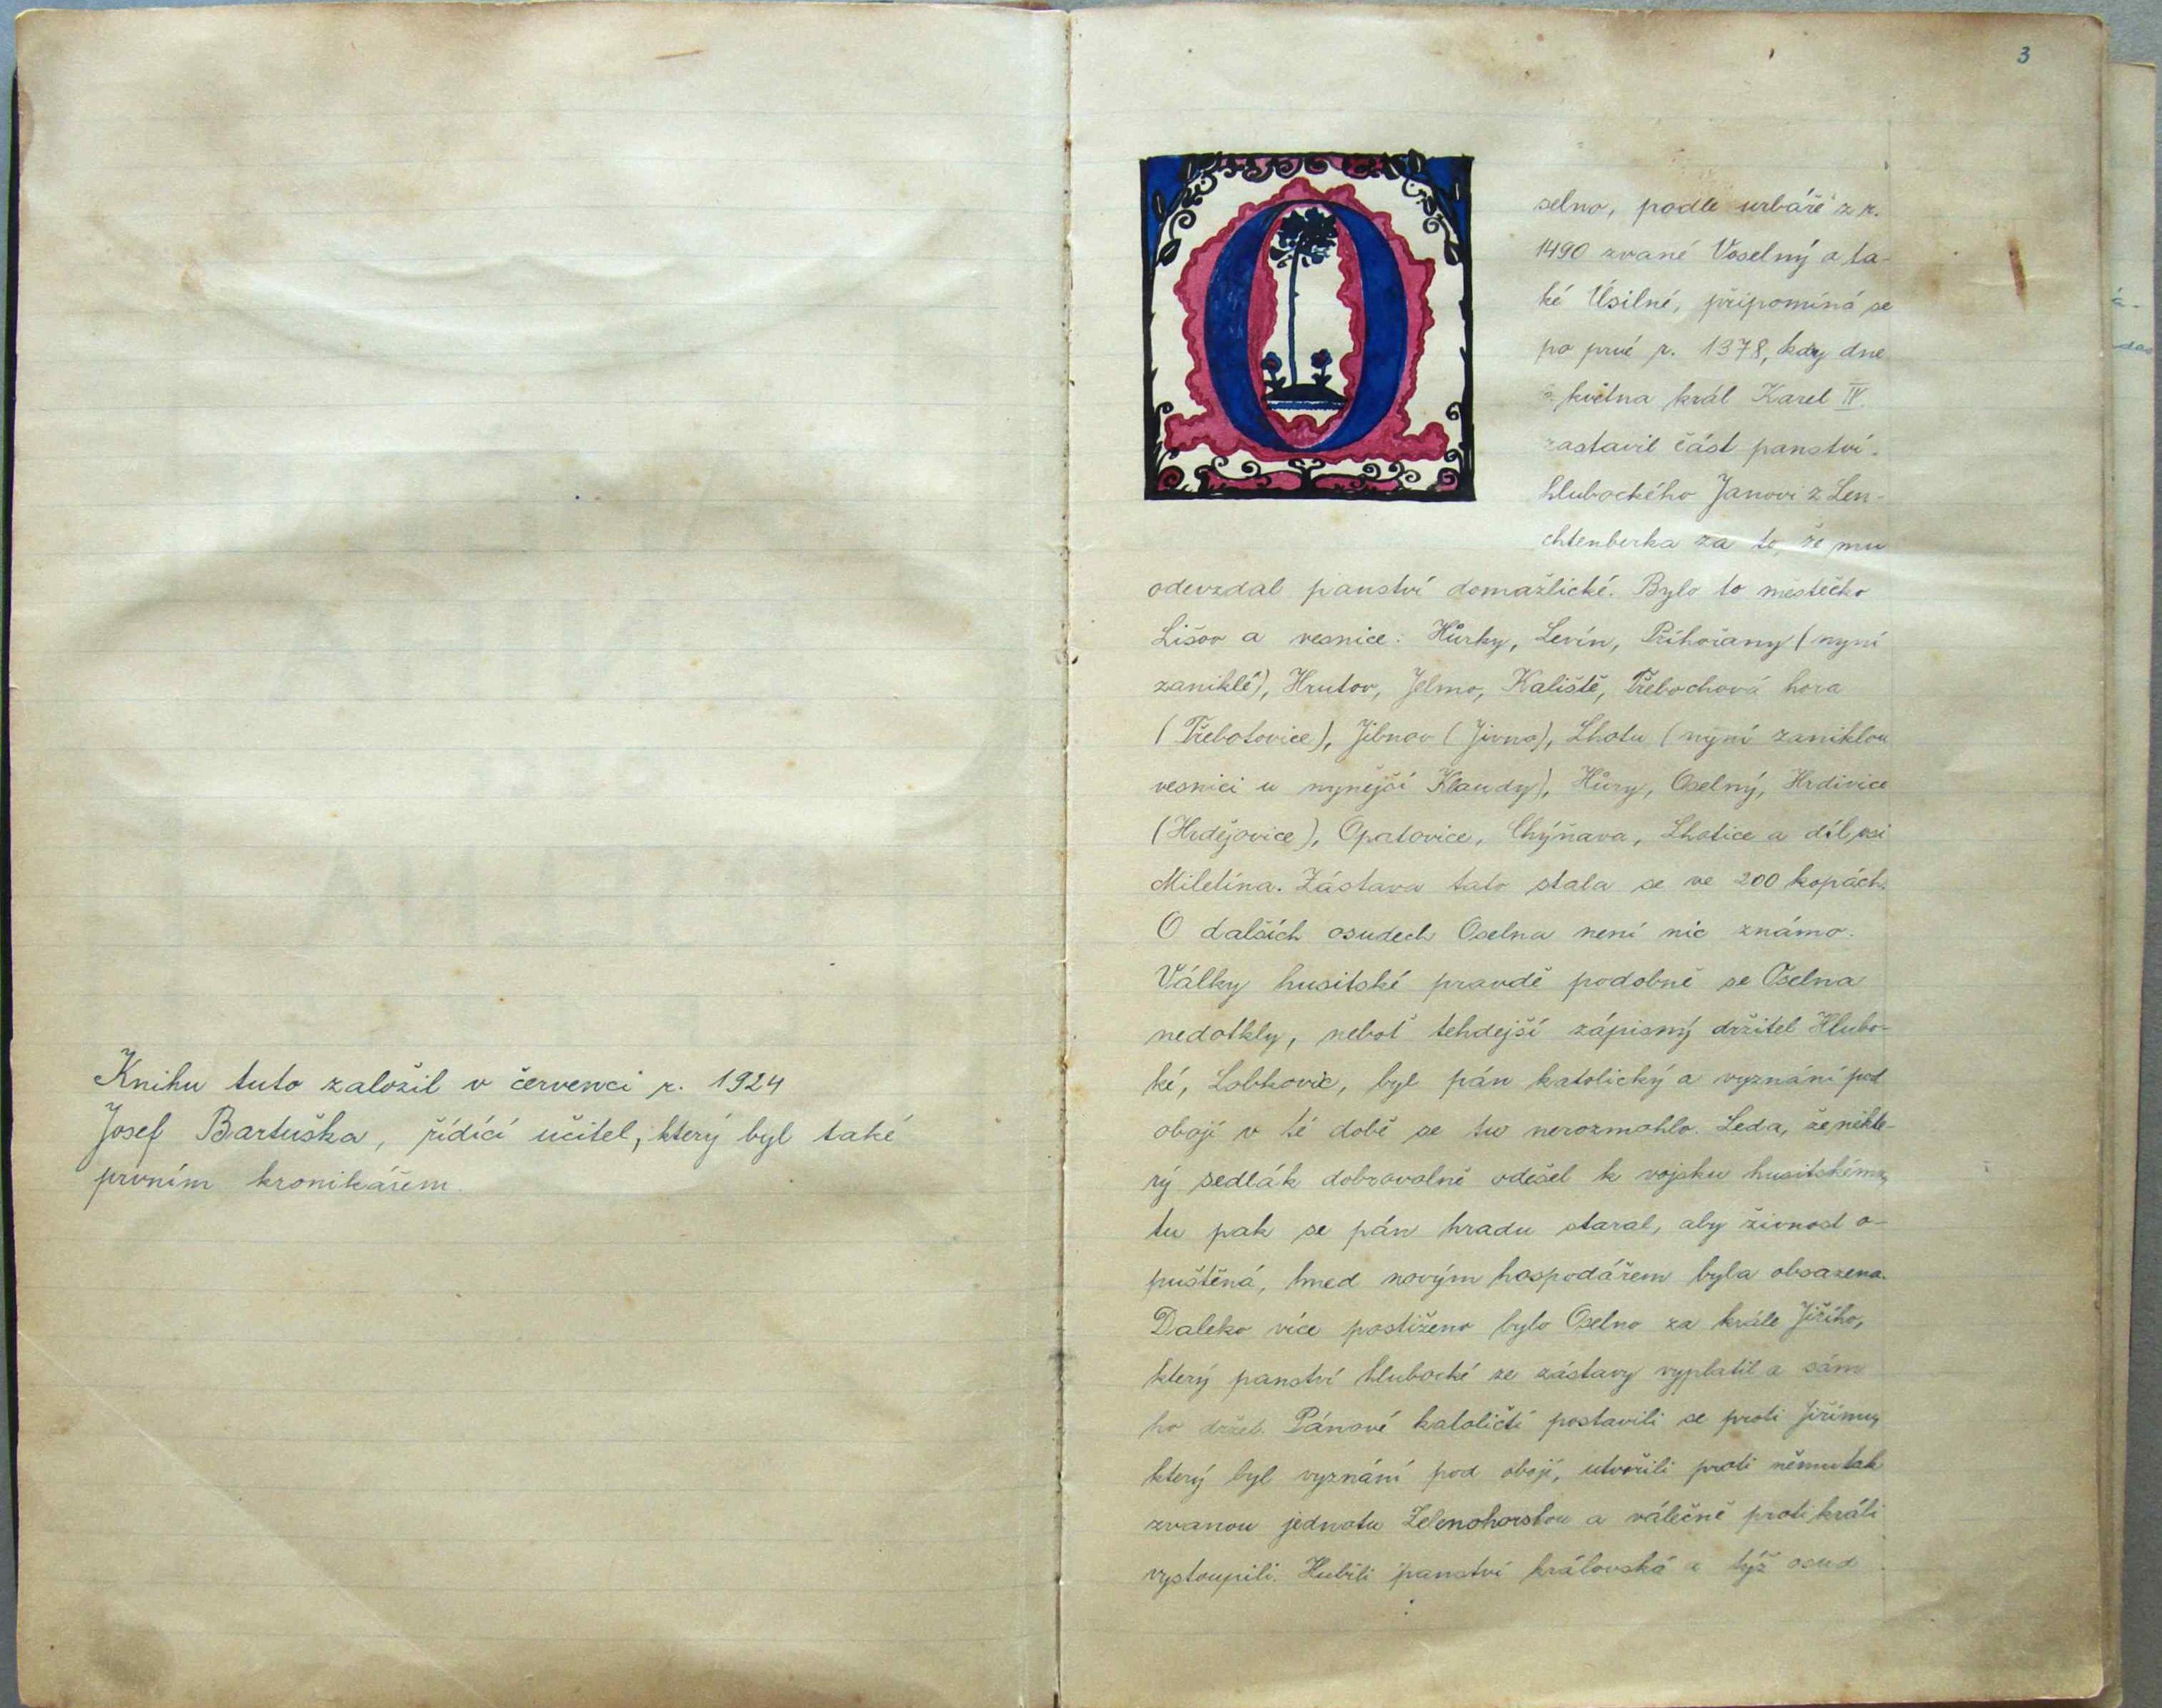 Knihu tuto založil v červenci r. 1924
Josef Bartuška, řídící učitel, který byl také
prvním kronikářem.
3
O
selno, podle urbáře z r.
1490 zvané Voselný a ta-
ké Úsilné, připomíná se
po prvé r. 1378, kdy dne
května král Karel IV.
zastavil část panství
hlubockého Janovi z Len-
chtenberka za to, že mu
odevzdal panství domažlické. Bylo to městečko
Lišov a vesnice: Hůrky, Levín, Příhořany (nyní
zaniklé), Hrutov, Jelmo, Kaliště, Třebochová hora
(Třebotovice), Jibnov (Jivno), Lhotu (nyní zaniklou
vesnici u nynější Klaudy), Hůry, Oselný, Hrdivice
(Hrdějovice), Opatovice, Chýňava, Lhotice a díl vsi
Miletína. Zástava tato stala se ve 200 kopách.
O dalších osudech Oselna není nic známo.
Války husitské pravdě podobně se Oselna
nedotkly, neboť tehdejší zápisný držitel Hlubo-
ké, Lobkovic, byl pán katolický a vyznání pod
obojí v té době se tu nerozmohlo. Leda, že někte-
rý sedlák dobrovolně odešel k vojsku husitskému,
tu pak se pán hradu staral, aby živnost o-
puštěná, hned novým hospodářem byla obsazena.
Daleko více postiženo bylo Oselno za krále Jiřího,
který panství hlubocké ze zástavy vyplatil a sám
ho držel. Pánové katoličtí postavili se proti Jiřímu,
který byl vyznání pod obojí, utvořili proti němu tak
zvanou jednotu Zelenohorskou a válečně proti králi
vystoupili. Hubili panství královská a týž osud